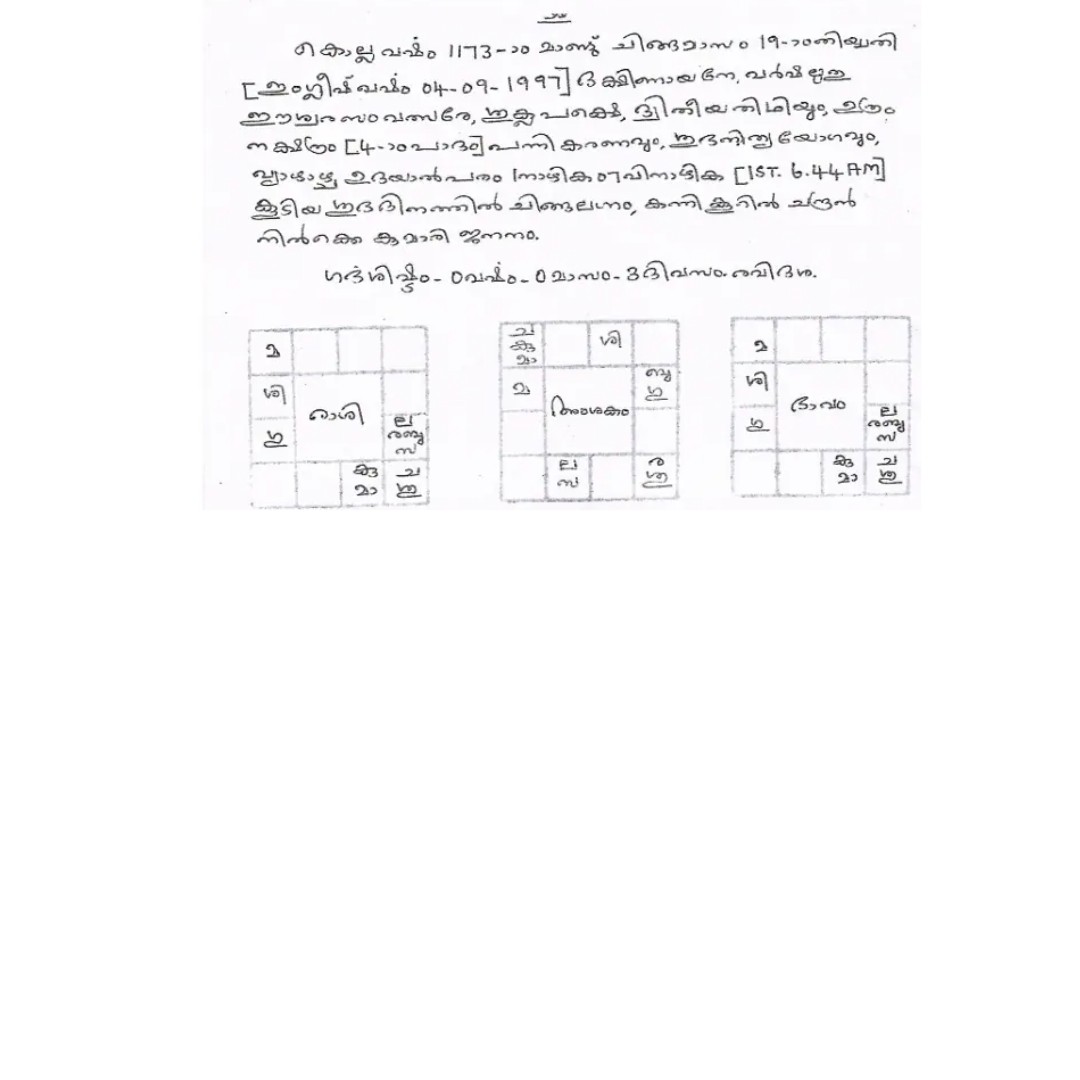 കൊല്ല വർഷം 1173-ാം മാണ്ട് ചിങ്ങമാസം 19-ാംതിയ്യതി
[ഇംഗ്ലീഷ് വർഷം 04-09-1997] ദക്ഷിണായനേ, വർഷഋതു
ഈശ്വര സംവത്സരേ, ശുക്ല പക്ഷെ, ദ്വിതീയ തിഥിയും, ഉത്രം
നക്ഷത്രം [4-ാംപാദം] പന്നി കരണവും, യോഗവും,
വ്യാഴാഴ്ച ഉദയാൽപരം 1 നാഴിക 07 വിനാഴിക [IST. 6.44 AM]
കൂടിയ ശുഭദിനത്തിൽ ചിങ്ങലഗ്നം, കന്നി കൂറിൽ ചന്ദ്രൻ
നിൽക്കെ കുമാരി ജനനം.
ഗർഭശിഷ്ടം - 0 വർഷം - 0 മാസം - 3 ദിവസം. രവിദശ.
മ
ശി
ഗു
രാശി
ല
രബു
സ
കു
മാ
ച
ശു
ച
കു
മാ
ശി
മ
ബു
ഗു
അംശകം
ല
സ
ര
ശു
മ
ശി
ഗു
ഭാവം
ല
രബു
സ
കു
മാ
ച
ശു